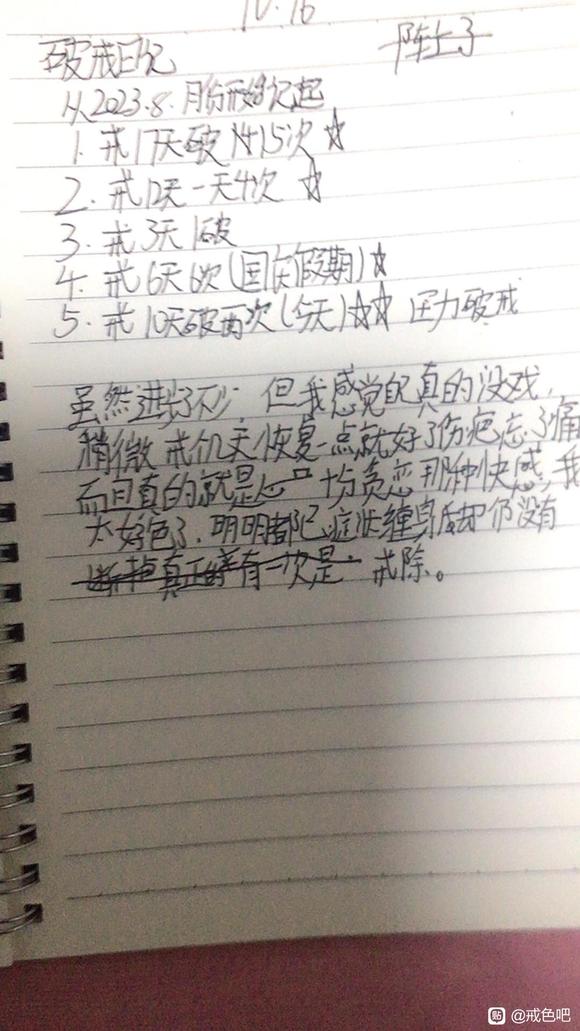 10.16
破戒日记
阵上子
从2023.8.月份开始记起
1. 戒17天破 15次 ☆
2. 戒12天一天4次 ☆
3. 戒3天1破
4. 戒6天6次(国庆假期)☆
5. 戒10天破两次(今天)☆☆ 压力破戒
虽然进步了不少,但我感觉自己真的没戏,
稍微戒几天恢复一点就好了伤疤忘了痛
而且真的就是 十分贪恋那种快感,我
太好色了,明明都已症状缠身 却仍没有
真正的 有一次是 戒除。
@戒色吧